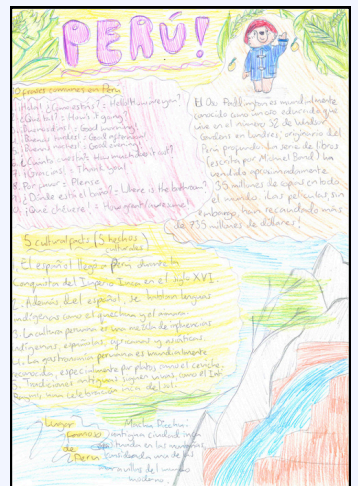 PERÚ!
10 frases comunes en Perú
1. ¡Hola! ¿Cómo estás? = Hello! How are you?
2. ¿Qué tal? = How's it going?
3. ¡Buenos días! = Good morning!
4. ¡Buenas tardes! = Good afternoon!
5. ¡Buenas noches! = Good evening!
6. ¿Cuánto cuesta? = How much does it cost?
7. ¡Gracias! = Thank you!
8. Por favor = Please
9. ¿Dónde está el baño? = Where is the bathroom?
¡Qué chévere! = How great/awesome!
El Oso Paddington es mundialmente
conocido como un oso adorable que
vive en el número 32 de Windsor
Gardens en Londres, originario del
Perú profundo. La serie de libros
(escrita por Michael Bond) ha
vendido aproximadamente
35 millones de copias en todo
el mundo. Las películas, sin
embargo, han recaudado más
de 735 millones de dólares!
5 cultural facts (5 hechos
culturales)
El español llegó a Perú durante la
Conquista del Imperio Inca en el siglo XVI.
2. Además del español, se hablan lenguas
indígenas como el quechua y el aimara.
3. La cultura peruana es una mezcla de influencias
indígenas, españolas, africanas y asiáticas.
4. La gastronomía peruana es mundialmente
reconocida, especialmente por platos como el ceviche.
5. Tradiciones antiguas siguen vivas, como el Inti
Raymi, una celebración inca del sol.
Lugar
famoso
de
Perú
Machu Picchu:
antigua ciudad inca
construida en las montañas,
considerada una de las
maravillas del mundo
moderno.